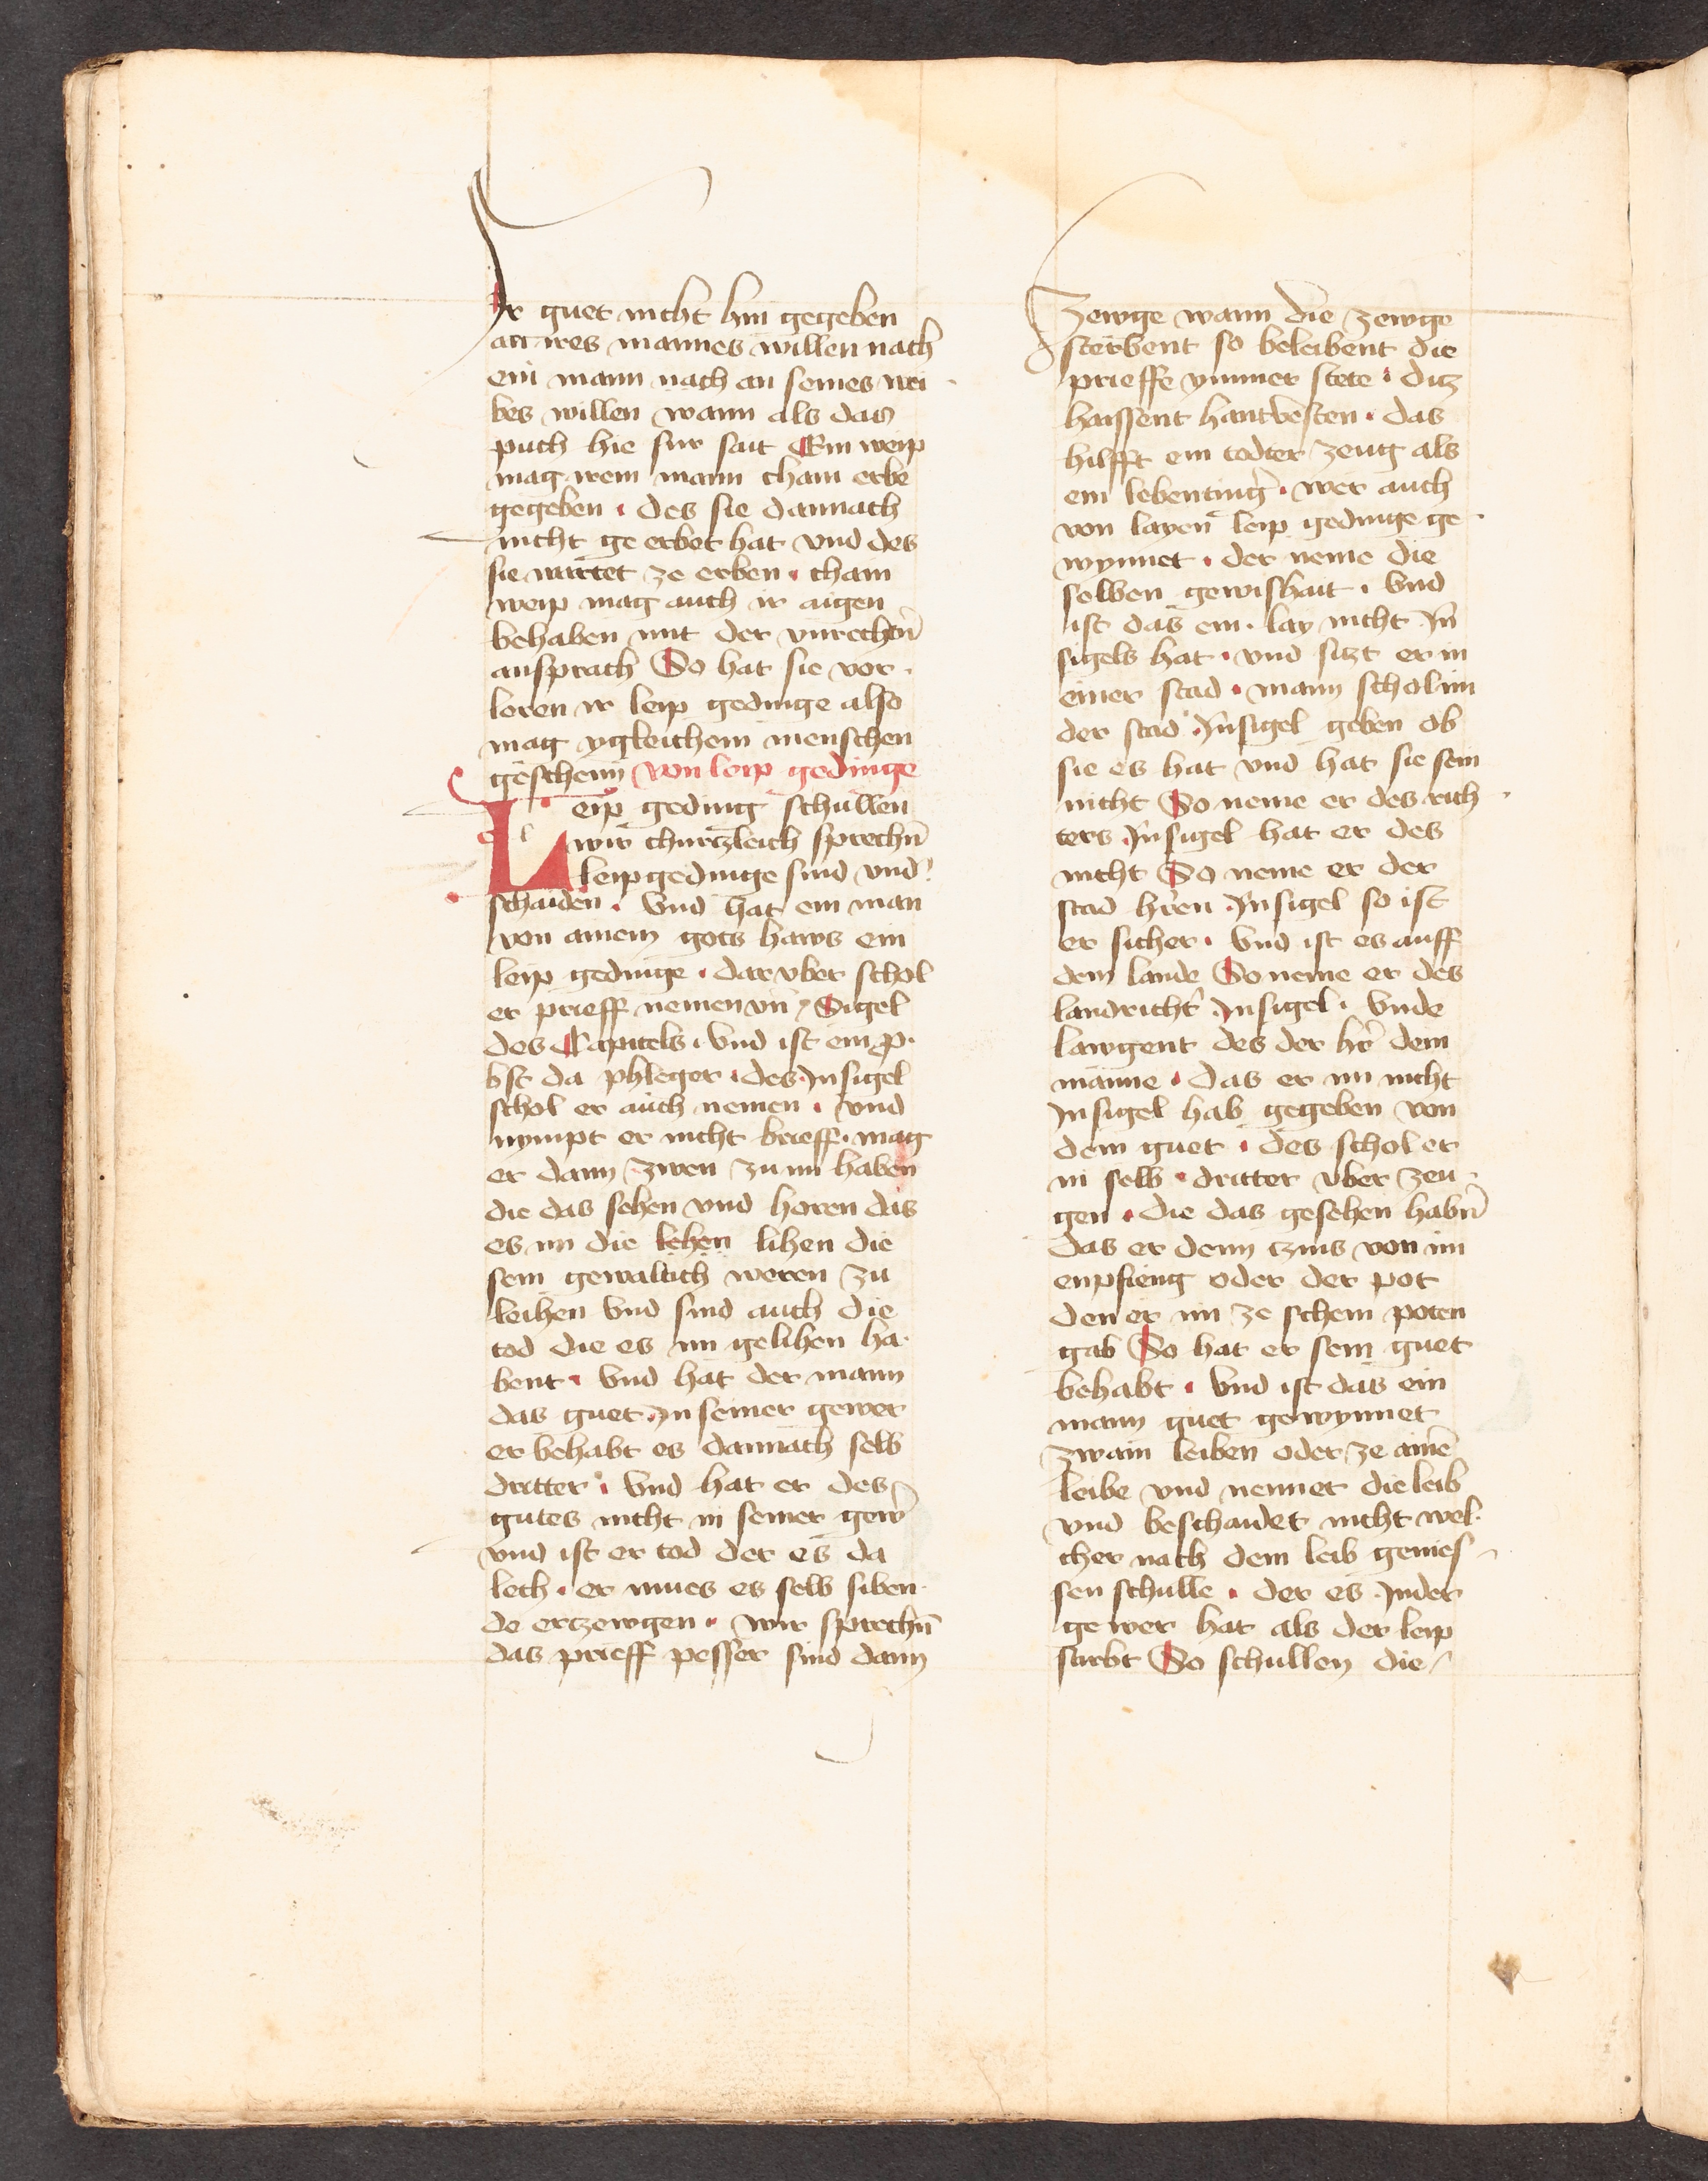 Ir guet nicht hin gegeben
an ires mannes willen nach
ein mann nach an seines wei
bes willen wann als das
puch hie fur sait Ein weip
mag irem mann chain erbe
gegeben · des sie dannach
nicht ge erbet hat vnd des
sie wartet ze erben · chain
weip mag auch ir aigen
behaben mit der vnrechtn̄
ansprach So hat sie vor
loren ir leip gedinge also
mag ygleichem menschen
geschehen Von leip gedinge
Leip geding schullen
wir churczleich sprechn̄
leipgedinge sind vnd̾
schaiden · Vnd hat ein man
von ainem gots haws ein
leip gedinge · dar vber schol
er prieff nemen vn̄ Sigel
des Capitels · vnd ist ein p
bst da phleger · des Insigel
schol er auch nemen · Vnd
nympt er nicht brieff · mag
er dann zwen zu im haben
die das sehen vnd horen das
es im die lehen lihen die
sein gewaltich weren zu
leihen Vnd sind auch die
tod die es im gelihen ha
bent · Vnd hat der mann
das guet In seiner gewer
er behabt es dannach selb
dritter · Vnd hat er des
gutes nicht in seiner gew̄
vnd ist er tod der es da
lech · er mues es selb siben
de erczewgen · Wir sprechn̄
das prieff pesser sind dann
Zewge wann die zewge
sterbent so beleibent die
prieffe ymmer stete · ditz
haissent hantvesten · das
hilfft ein todter zeug als
ein lebentinger̄ · wer auch
von layen leip gedinge ge
wynnet · der neme die
selben gewishait · Vnd
ist das ein lay nicht In
sigels hat · vnd sitzt er in
einer stad · mann schol im
der stad Insigel geben ob
sie es hat vnd hat sie sein
nicht So neme er des rich
ters Insigel hat er des
nicht So neme er der
stad h̾ren Insigel so ist
er sicher · Vnd ist es auff
dem lande So neme er des
landricht̾ Insigel · Vnde
lawgent des der h̾r dem
manne · das er im nicht
Insigel hab gegeben von
dem guet · des schol er
in selb dritter vber zeu
gen · die das gesehen habn̄
das er denn czins von im
enpfieng oder der pot
den er im ze schein poten
gab So hat er sein guet
behabt · Vnd ist das ein
mann guet gewynnet
zwain leiben oder ze aine̅
leibe vnd nennet die leib
vnd beschaidet nicht wel
cher nach dem leib genies
sen schulle · der es In der
gewer hat als der leip
starbt So schullen die